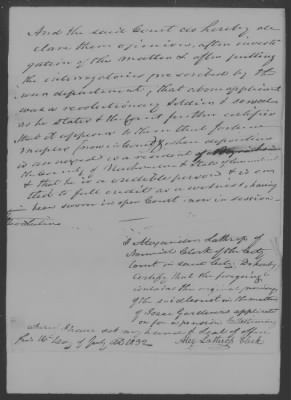 And the said Court do hereby de
clare their opinions, after investi
gation of the matter & after putting
the interrogatories prescribed by the
war department, that above applicant
was a revolutionary Soldier & served
as he states & the Court further certifies
that it appears to them that
Maples who deposition
is annexed is a resident
the County of & State of
& that he is a credible person & is en
titled to full credit as a witness, having
been sworn in open Court now in session
I Alexander Lathrop of
Norwich Clerk of the City
Court in said City Do hereby
Certify that the foregoing
contains the original proceedings
of the said Court in the matter
of Isaac Gardner's applicati
on for a pension In testimony
whereof I have set my name & Seal of office
this 16 Day of July AD 1832 Alex Lathrop Clerk